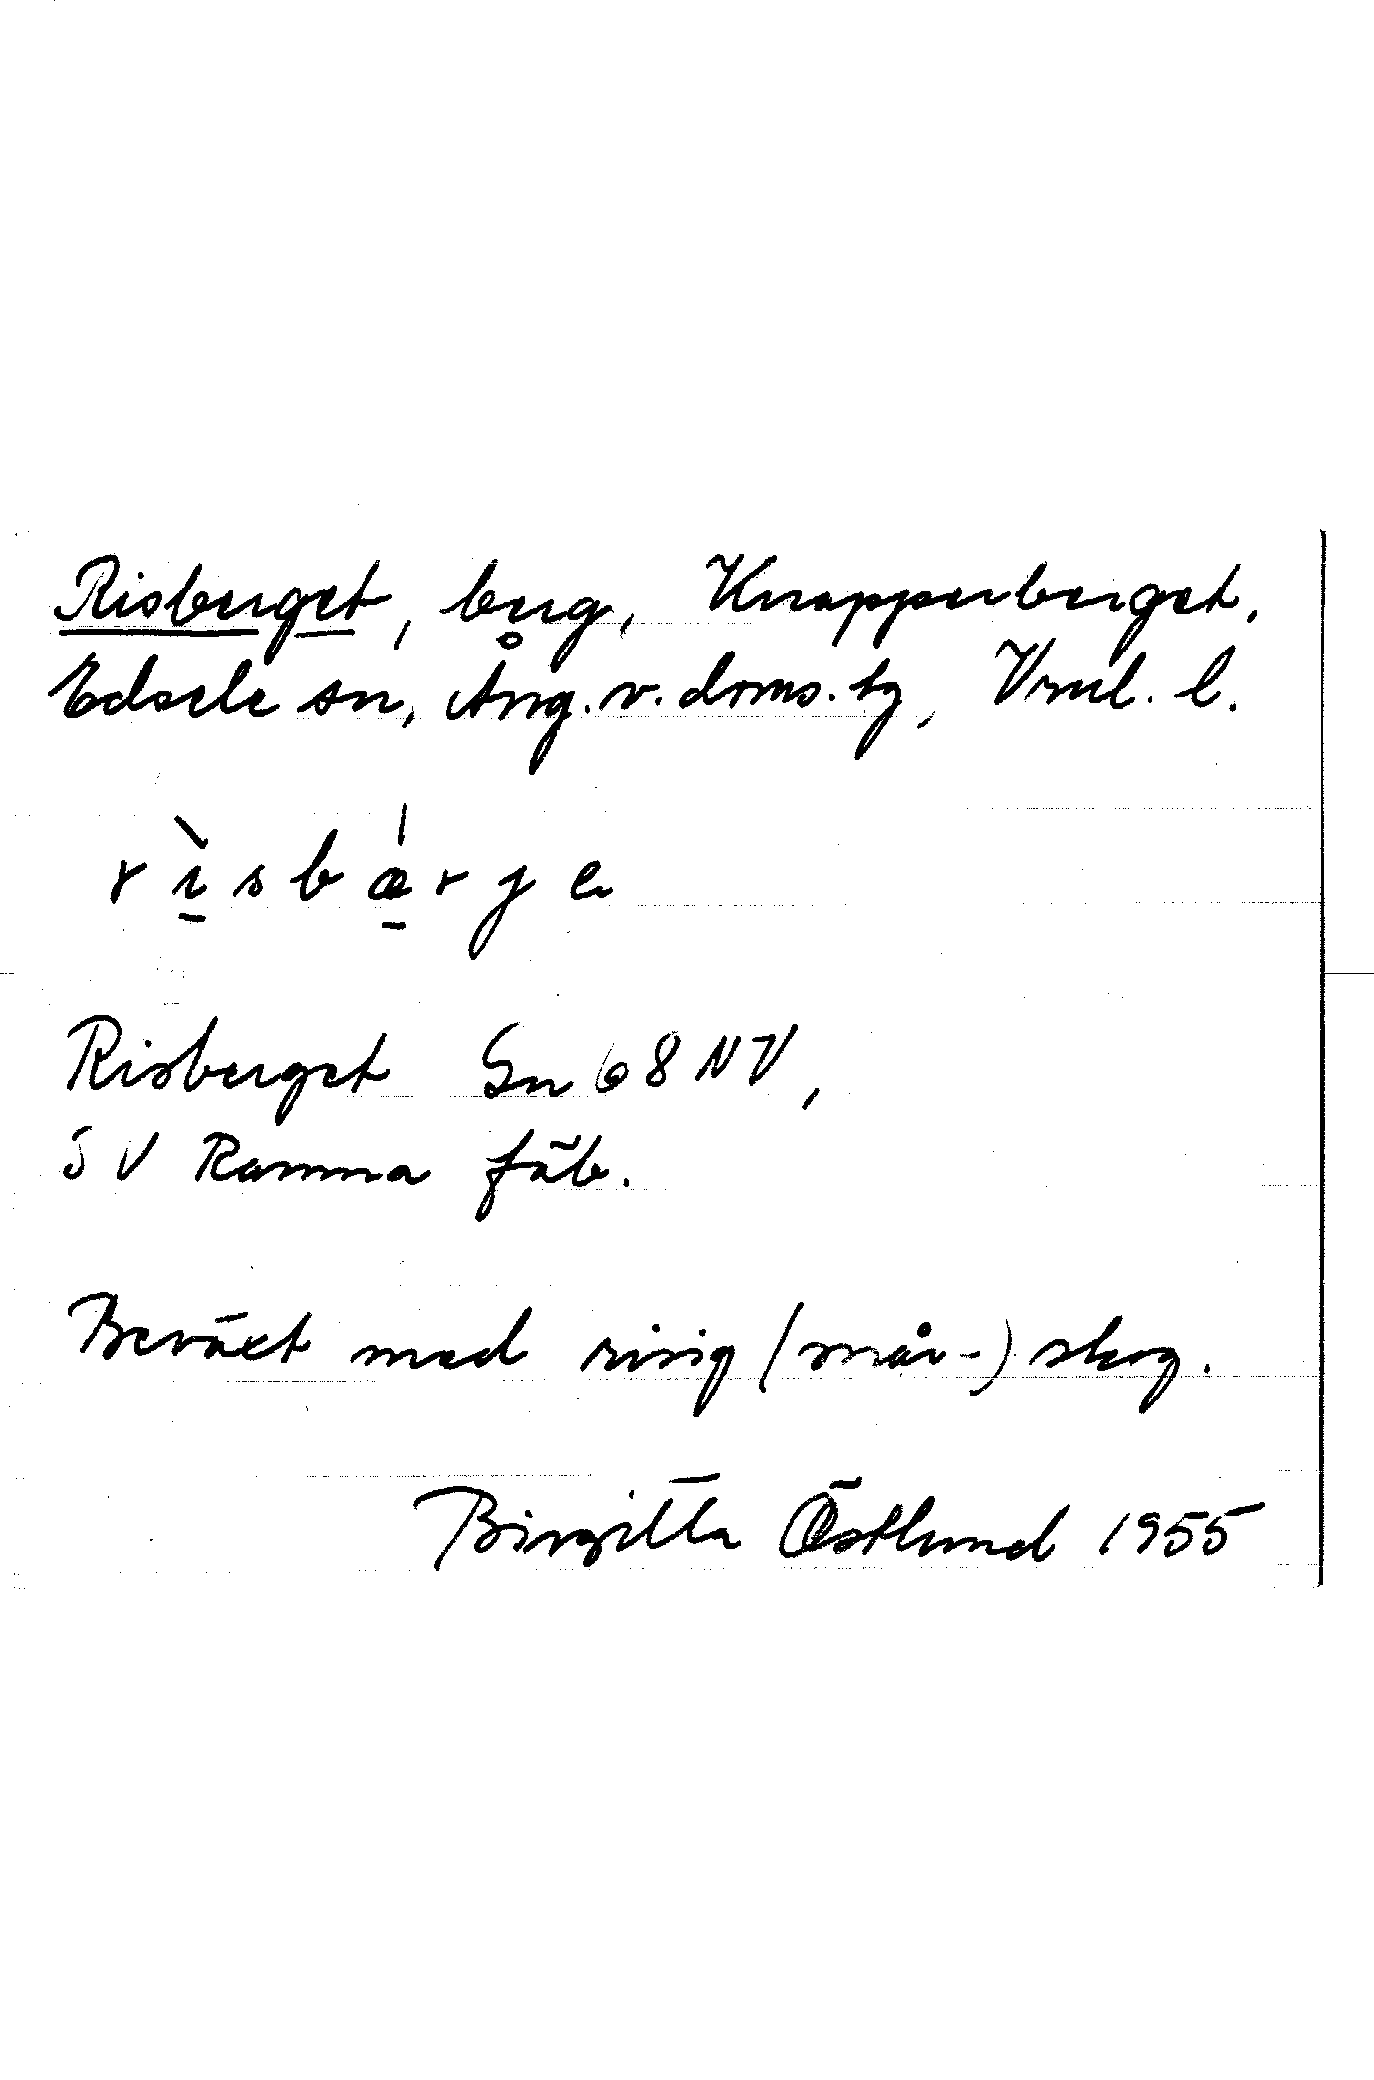 Risberget, berg, Knapperberget,
Edsele sn, Ång. v. doms. tg, Vrnl. l.
rìsbærje
Risberget Gn 68 NV,
SV Ramna fäb.
Beväxt med risig (små-) skog.
Birgitta Östlund 1955